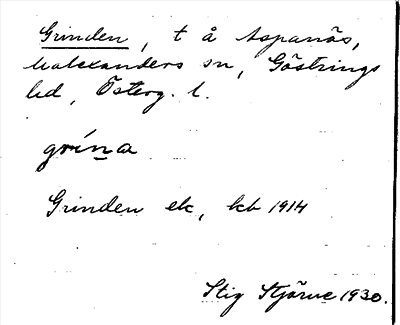 Grinden, t å Aspanäs,
Malexanders sn, Göstrings
hd, Österg. l.
grína
Grinden ek, kb 1914
Stig Stjärne 1930.